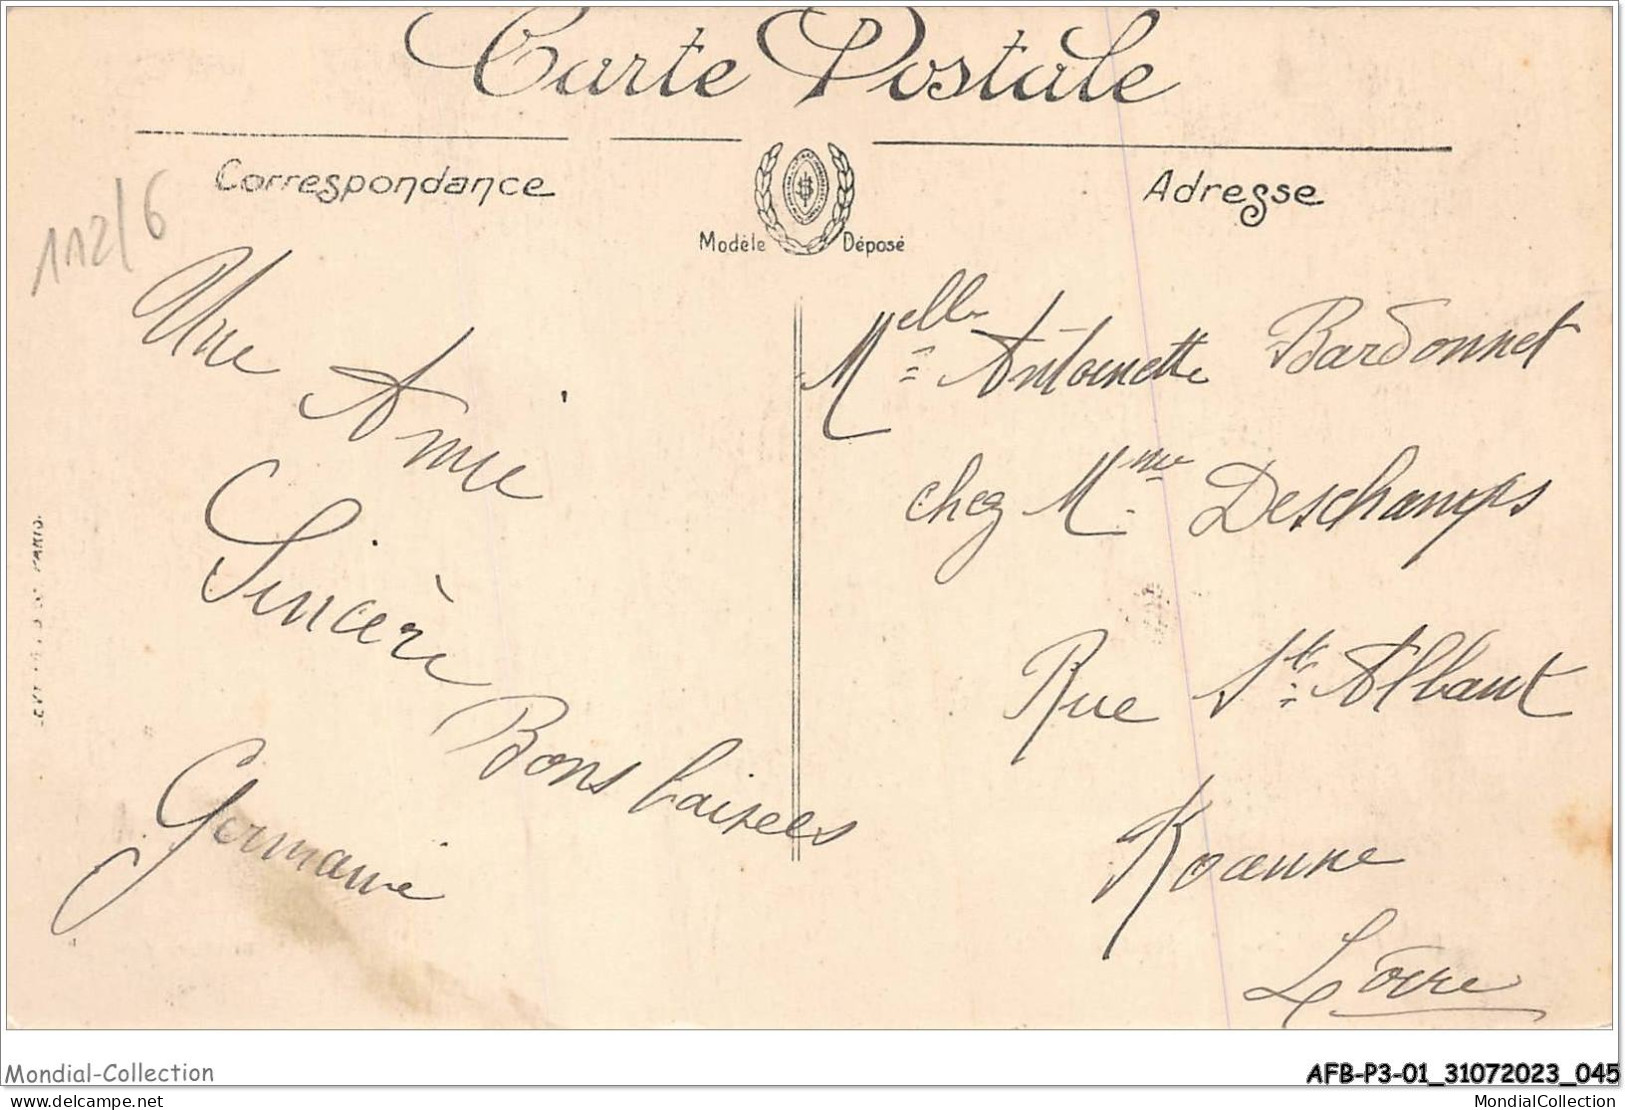 Carte Postale
Correspondance
Adresse
Modèle Déposé
112/6
Une
Amie
Sincère
Bons baisers
Germaine
Melle Antoinette Bardonnet
chez Mme Deschamps
Rue St Albant
Roanne
Loire
PARIS.
Mondial-Collection
AFB-P3-01_31072023_045
delcampe.net
MondialCollection